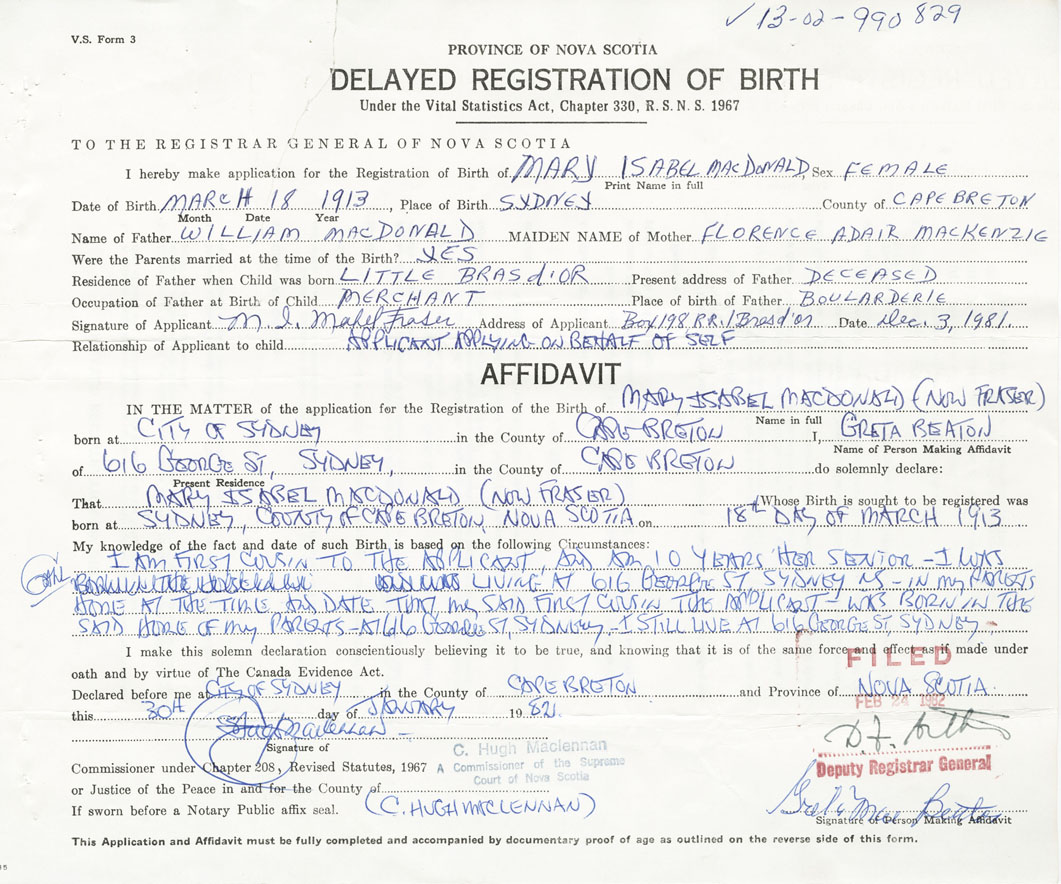 ✓ 13-02-990 829
V.S. Form 3
PROVINCE OF NOVA SCOTIA
DELAYED REGISTRATION OF BIRTH
Under the Vital Statistics Act, Chapter 330, R.S.N.S. 1967
TO THE REGISTRAR GENERAL OF NOVA SCOTIA
I hereby make application for the Registration of Birth of MARY ISABEL MACDONALD Sex FEMALE
Print Name in full
Date of Birth MARCH 18 1913, Place of Birth SYDNEY County of CAPE BRETON
Month Date Year
Name of Father WILLIAM MACDONALD MAIDEN NAME of Mother FLORENCE ADAIR MACKENZIE
Were the Parents married at the time of the Birth? YES
Residence of Father when Child was born LITTLE BRASd'OR Present address of Father DECEASED
Occupation of Father at Birth of Child MERCHANT Place of birth of Father BOULARDERIE
Signature of Applicant M. I. Mabel Fraser Address of Applicant Box 198 R.R.1 Bras d'or Date Dec. 3, 1981.
Relationship of Applicant to child APPLICANT APPLYING ON BEHALF OF SELF
AFFIDAVIT
IN THE MATTER of the application for the Registration of the Birth of MARY ISABEL MACDONALD (NOW FRASER)
Name in full
born at CITY OF SYDNEY in the County of CAPE BRETON I, GRETA BEATON
Name of Person Making Affidavit
of 616 GEORGE ST, SYDNEY, in the County of CAPE BRETON do solemnly declare:
Present Residence
That MARY ISABEL MACDONALD (NOW FRASER) (Whose Birth is sought to be registered was
born at SYDNEY, COUNTY OF CAPE BRETON, NOVA SCOTIA on 18th DAY OF MARCH 1913
My knowledge of the fact and date of such Birth is based on the following Circumstances:
I AM FIRST COUSIN TO THE APPLICANT, AND AM 10 YEARS HER SENIOR - I WAS
LIVING AT 616 GEORGE ST SYDNEY NS - IN MY PARENTS
HOME AT THE TIME AND DATE THAT MY SAID FIRST COUSIN THE APPLICANT - WAS BORN IN THE
SAID HOME OF MY PARENTS - AT 616 GEORGE ST, SYDNEY, - I STILL LIVE AT 616 GEORGE ST, SYDNEY -
I make this solemn declaration conscientiously believing it to be true, and knowing that it is of the same force and effect as if made under
FILED
oath and by virtue of The Canada Evidence Act.
Declared before me at CITY OF SYDNEY in the County of CAPE BRETON and Province of NOVA SCOTIA
FEB 24 1982
this 30th day of JANUARY 1982.
C. Hugh Maclennan
Signature of
C. Hugh Maclennan
A Commissioner of the Supreme
Court of Nova Scotia
Deputy Registrar General
Commissioner under Chapter 208, Revised Statutes, 1967
or Justice of the Peace in and for the County of
If sworn before a Notary Public affix seal. (C. HUGH MACLENNAN)
Greta Mae Beaton
Signature of Person Making Affidavit
This Application and Affidavit must be fully completed and accompanied by documentary proof of age as outlined on the reverse side of this form.